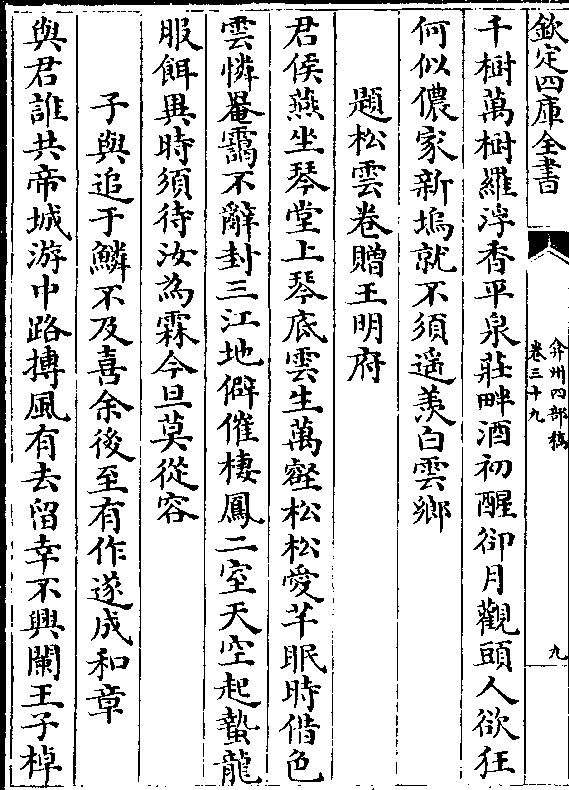 欽定四庫全書
弇州四部稿
卷三十九
九
千樹萬樹羅浮香平泉莊畔酒初醒卻月觀頭人欲狂
何似儂家新塢就不須遙羨白雲鄉
題松雲卷贈王明府
君侯燕坐琴堂上琴底雲生萬壑松松愛芊眠時借色
雲憐菴靄不辭封三江地僻催棲鳳二室天空起蟄龍
服餌異時須待汝為霖今旦莫從容
子與追于鱗不及喜余後至有作遂成和章
與君誰共帝城游中路摶風有去留幸不興闌王子棹